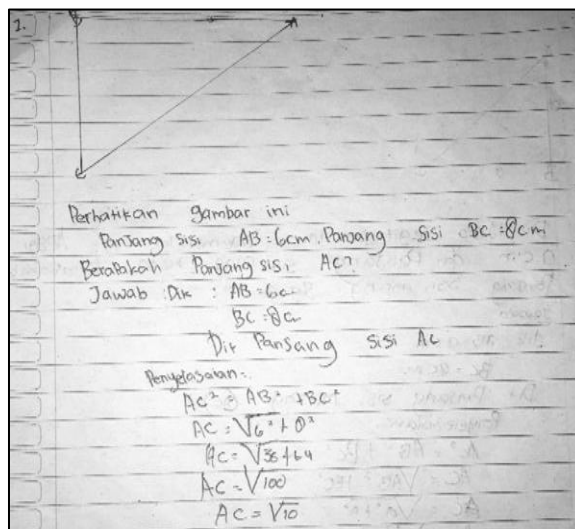 2.
B A
C
Perhatikan gambar ini
Panjang sisi AB = 6cm. Panjang sisi BC = 8cm
Berapakah Panjang sisi AC?
Jawab Dik : AB = 6cm
BC = 8cm
Dit Pansang sisi AC
Penyelasaian :
AC² = AB² + BC²
AC = √6² + 8²
AC = √36 + 64
AC = √100
AC = √10